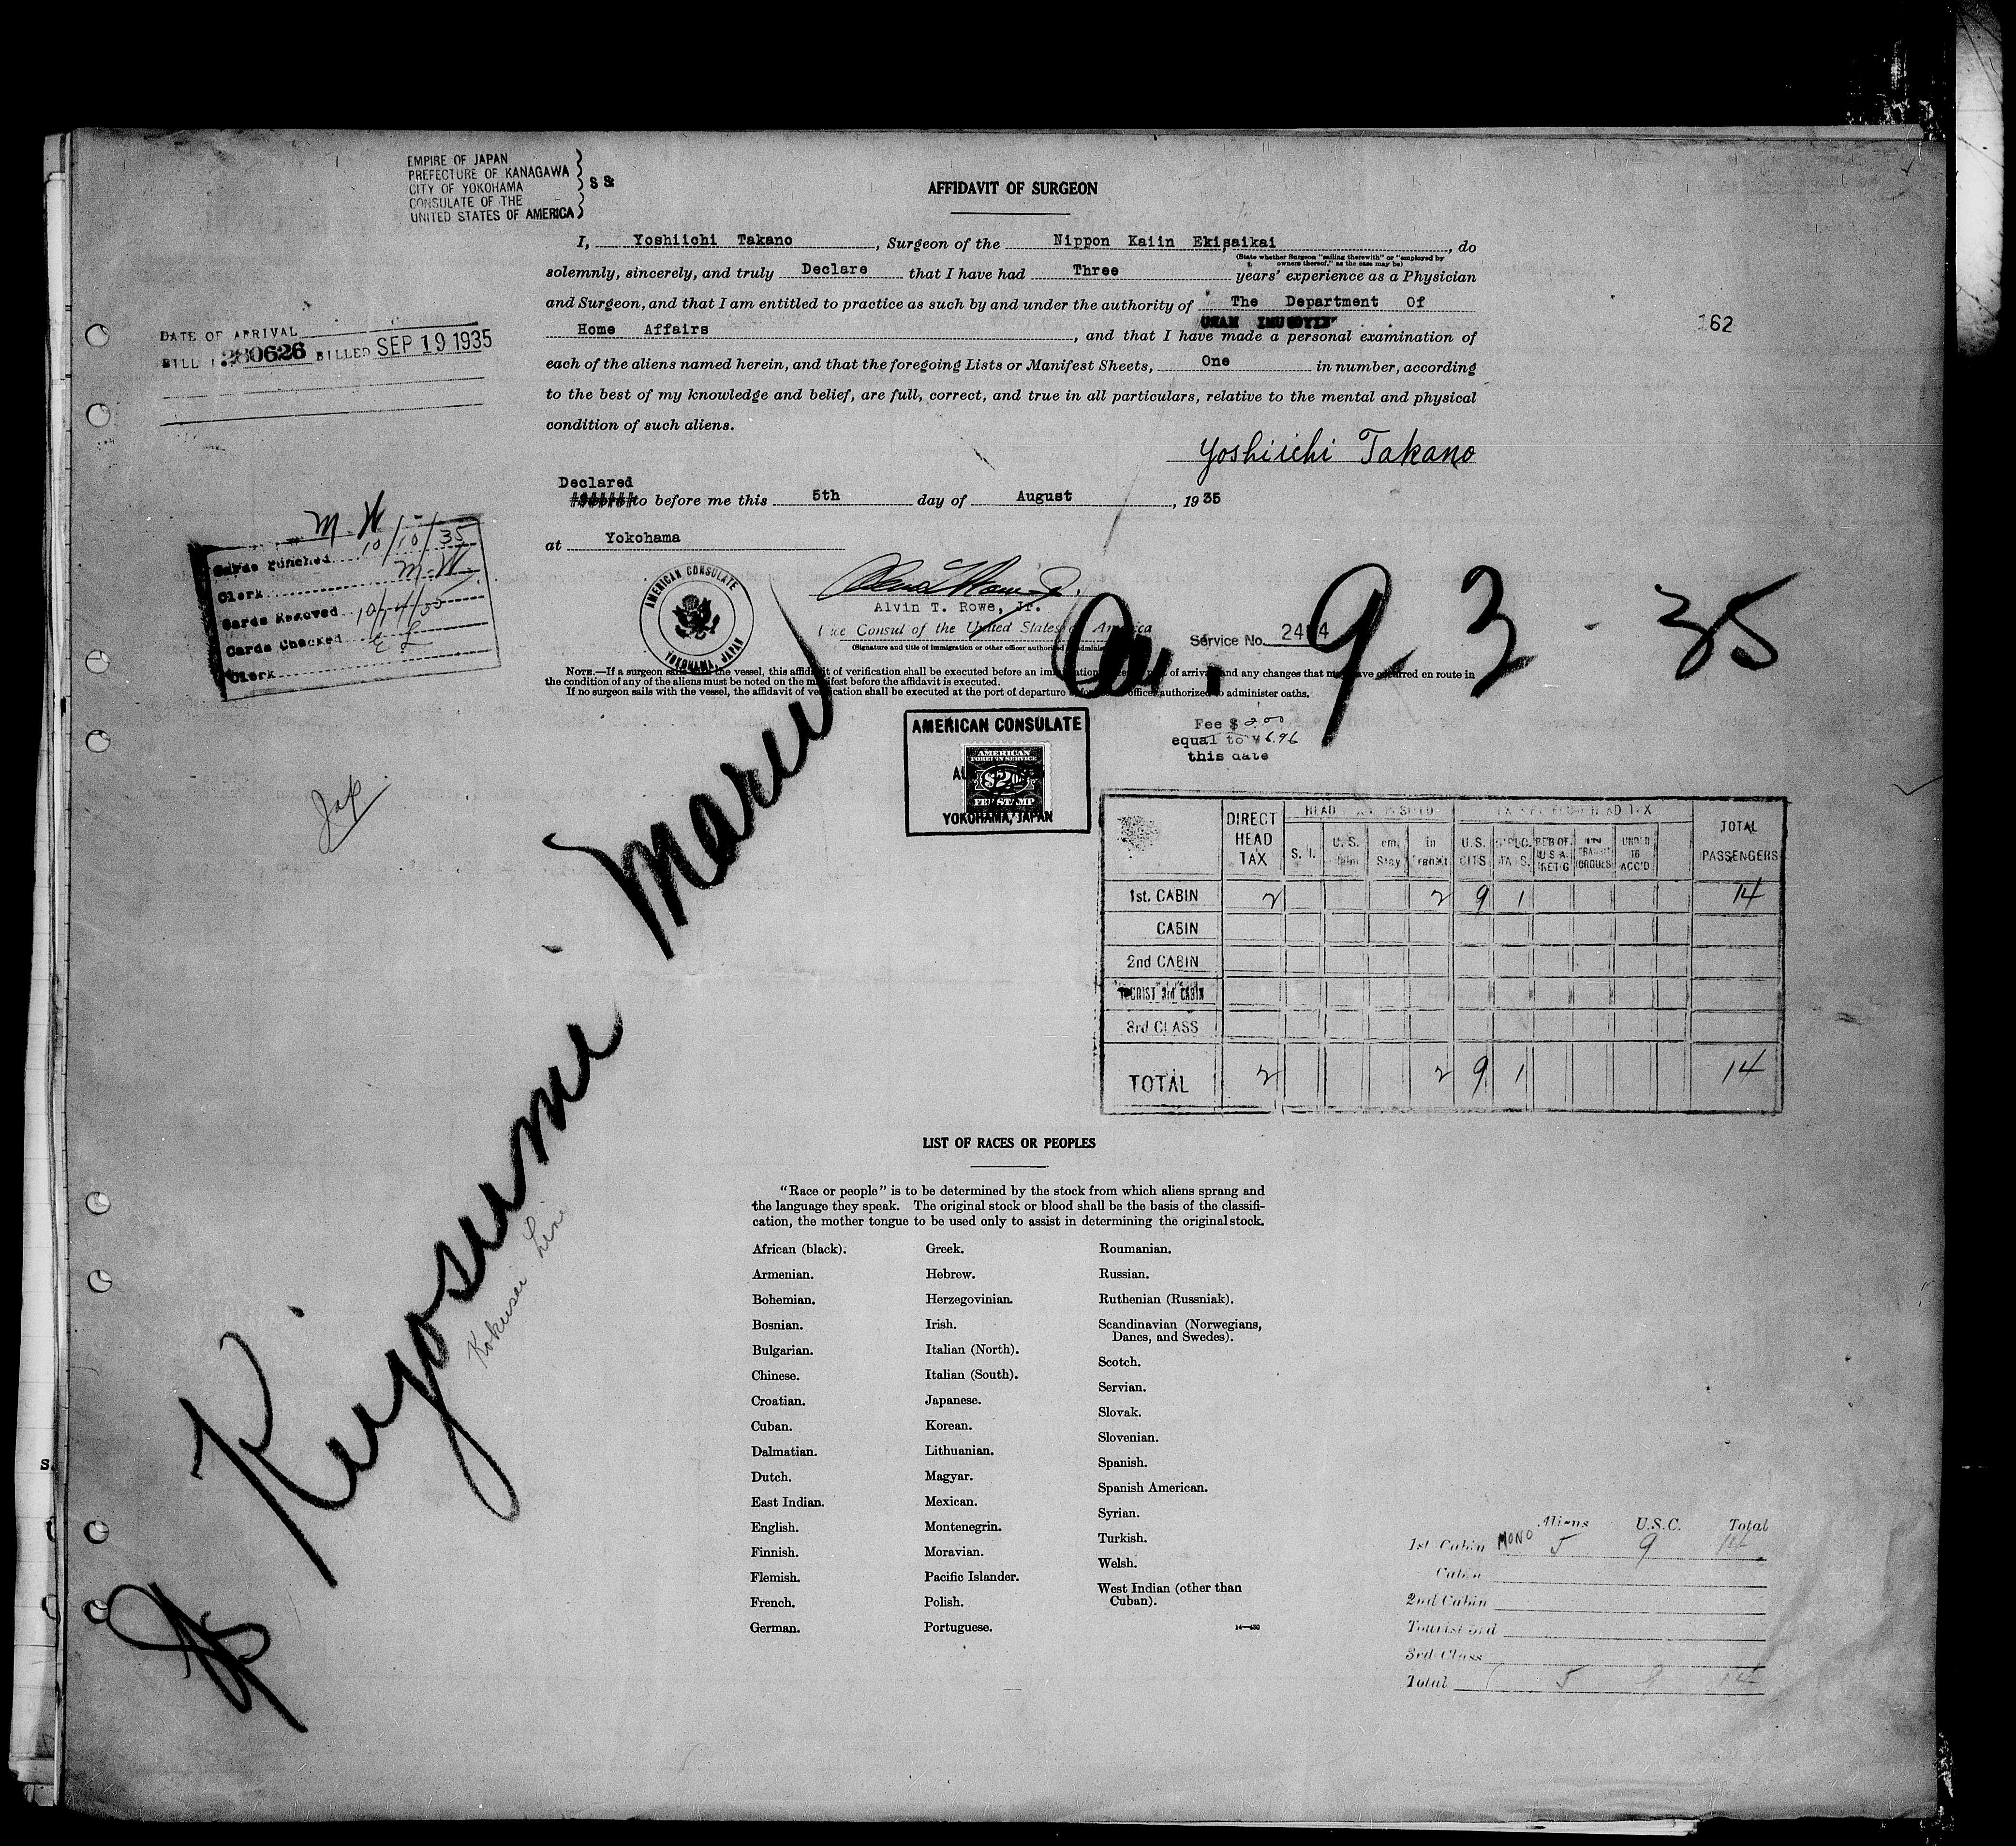 EMPIRE OF JAPAN
PREFECTURE OF KANAGAWA
CITY OF YOKOHAMA
CONSULATE OF THE
UNITED STATES OF AMERICA
SS
AFFIDAVIT OF SURGEON
I, Yoshiichi Takano, Surgeon of the Nippon Kaiin Ekisaikai, do
(State whether Surgeon "sailing therewith" or "employed by
owners thereof," as the case may be)
solemnly, sincerely, and truly Declare that I have had Three years' experience as a Physician
and Surgeon, and that I am entitled to practice as such by and under the authority of The Department Of
Home Affairs, and that I have made a personal examination of
each of the aliens named herein, and that the foregoing Lists or Manifest Sheets, One in number, according
to the best of my knowledge and belief, are full, correct, and true in all particulars, relative to the mental and physical
condition of such aliens.
Yoshiichi Takano
Declared
to before me this 5th day of August, 1935
at Yokohama
DATE OF ARRIVAL
BILL 280626 BILLED SEP 19 1935
162
M. W.
Cards Punched 10/10/35
Clerk M.W.
Cards Removed
Cards Checked
Clerk
AMERICAN CONSULATE
YOKOHAMA, JAPAN
Alvin T. Rowe, Jr.
Vice Consul of the United States of America
(Signature and title of immigration or other officer authorized
Service No.
9-3-35
NOTE.—If a surgeon sails with the vessel, this affidavit of verification shall be executed before an immigration of arrival and any changes that may have occurred en route in
the condition of any of the aliens must be noted on the manifest before the affidavit is executed.
If no surgeon sails with the vessel, the affidavit of verification shall be executed at the port of departure before officer authorized to administer oaths.
AMERICAN CONSULATE
AMERICAN
FOREIGN SERVICE
$2
FEE STAMP
YOKOHAMA, JAPAN
Fee $ 2.00
equal to ¥ 6.96
this date
Jap
Kiyosumi Maru
Kokusai Line
DIRECT HEAD TAX
HEAD
HEAD TAX
TOTAL PASSENGERS
S. I.
U.S.
Stay
in Transit
U.S. CITS
DIPLO.
RES OF U.S.A. RET'G
UNDER 16 ACC'D
1st. CABIN 2 2 9 1 14
CABIN
2nd CABIN
TOURIST 3rd CABIN
3rd CLASS
TOTAL 2 2 9 1 14
LIST OF RACES OR PEOPLES
"Race or people" is to be determined by the stock from which aliens sprang and
the language they speak. The original stock or blood shall be the basis of the classifi-
cation, the mother tongue to be used only to assist in determining the original stock.
African (black).
Armenian.
Bohemian.
Bosnian.
Bulgarian.
Chinese.
Croatian.
Cuban.
Dalmatian.
Dutch.
East Indian.
English.
Finnish.
Flemish.
French.
German.
Greek.
Hebrew.
Herzegovinian.
Irish.
Italian (North).
Italian (South).
Japanese.
Korean.
Lithuanian.
Magyar.
Mexican.
Montenegrin.
Moravian.
Pacific Islander.
Polish.
Portuguese.
Roumanian.
Russian.
Ruthenian (Russniak).
Scandinavian (Norwegians,
Danes, and Swedes).
Scotch.
Servian.
Slovak.
Slovenian.
Spanish.
Spanish American.
Syrian.
Turkish.
Welsh.
West Indian (other than
Cuban).
14—430
Aliens U.S.C. Total
1st Cabin MONO 5 9 14
Cabin
2nd Cabin
Tourist 3rd
3rd Class
Total 5 9 14